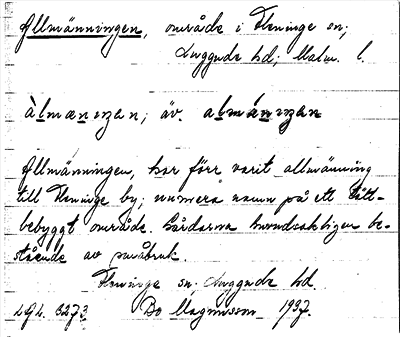 Allmänningen, område i Fleninge sn;
Luggude hd; Malm. l.
àlmænıŋan; äv. almánıŋan
Allmänningen, har förr varit allmänning
till Fleninge by; numera namn på ett tätt-
bebyggt område. Gårdarna huvudsakligen be-
stående av småbruk.
Fleninge sn. Luggude hd.
LGL. 3273 Bo Magnusson 1937.